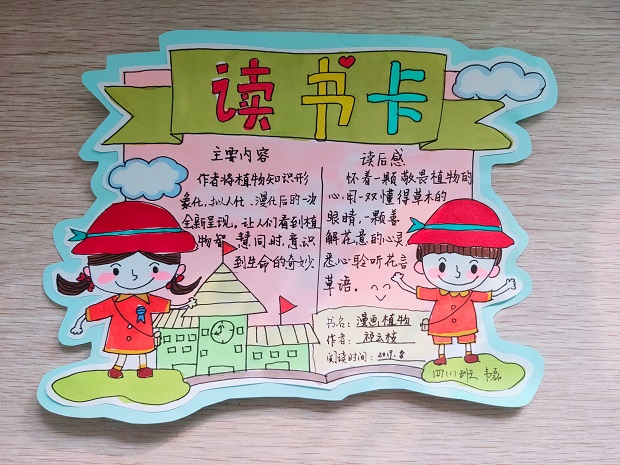 读书卡
主要内容
作者将植物知识形
象化,拟人化,漫化后的一次
全新呈现。让人们看到植
物智慧同时,意识
到生命的奇妙
读后感
怀着一颗敬畏植物的
心,用一双懂得草木的
眼睛,一颗善
解花意的心灵,
悉心聆听花言
草语。
书名:漫画植物
作者:
阅读时间:2019.8
四(1)班